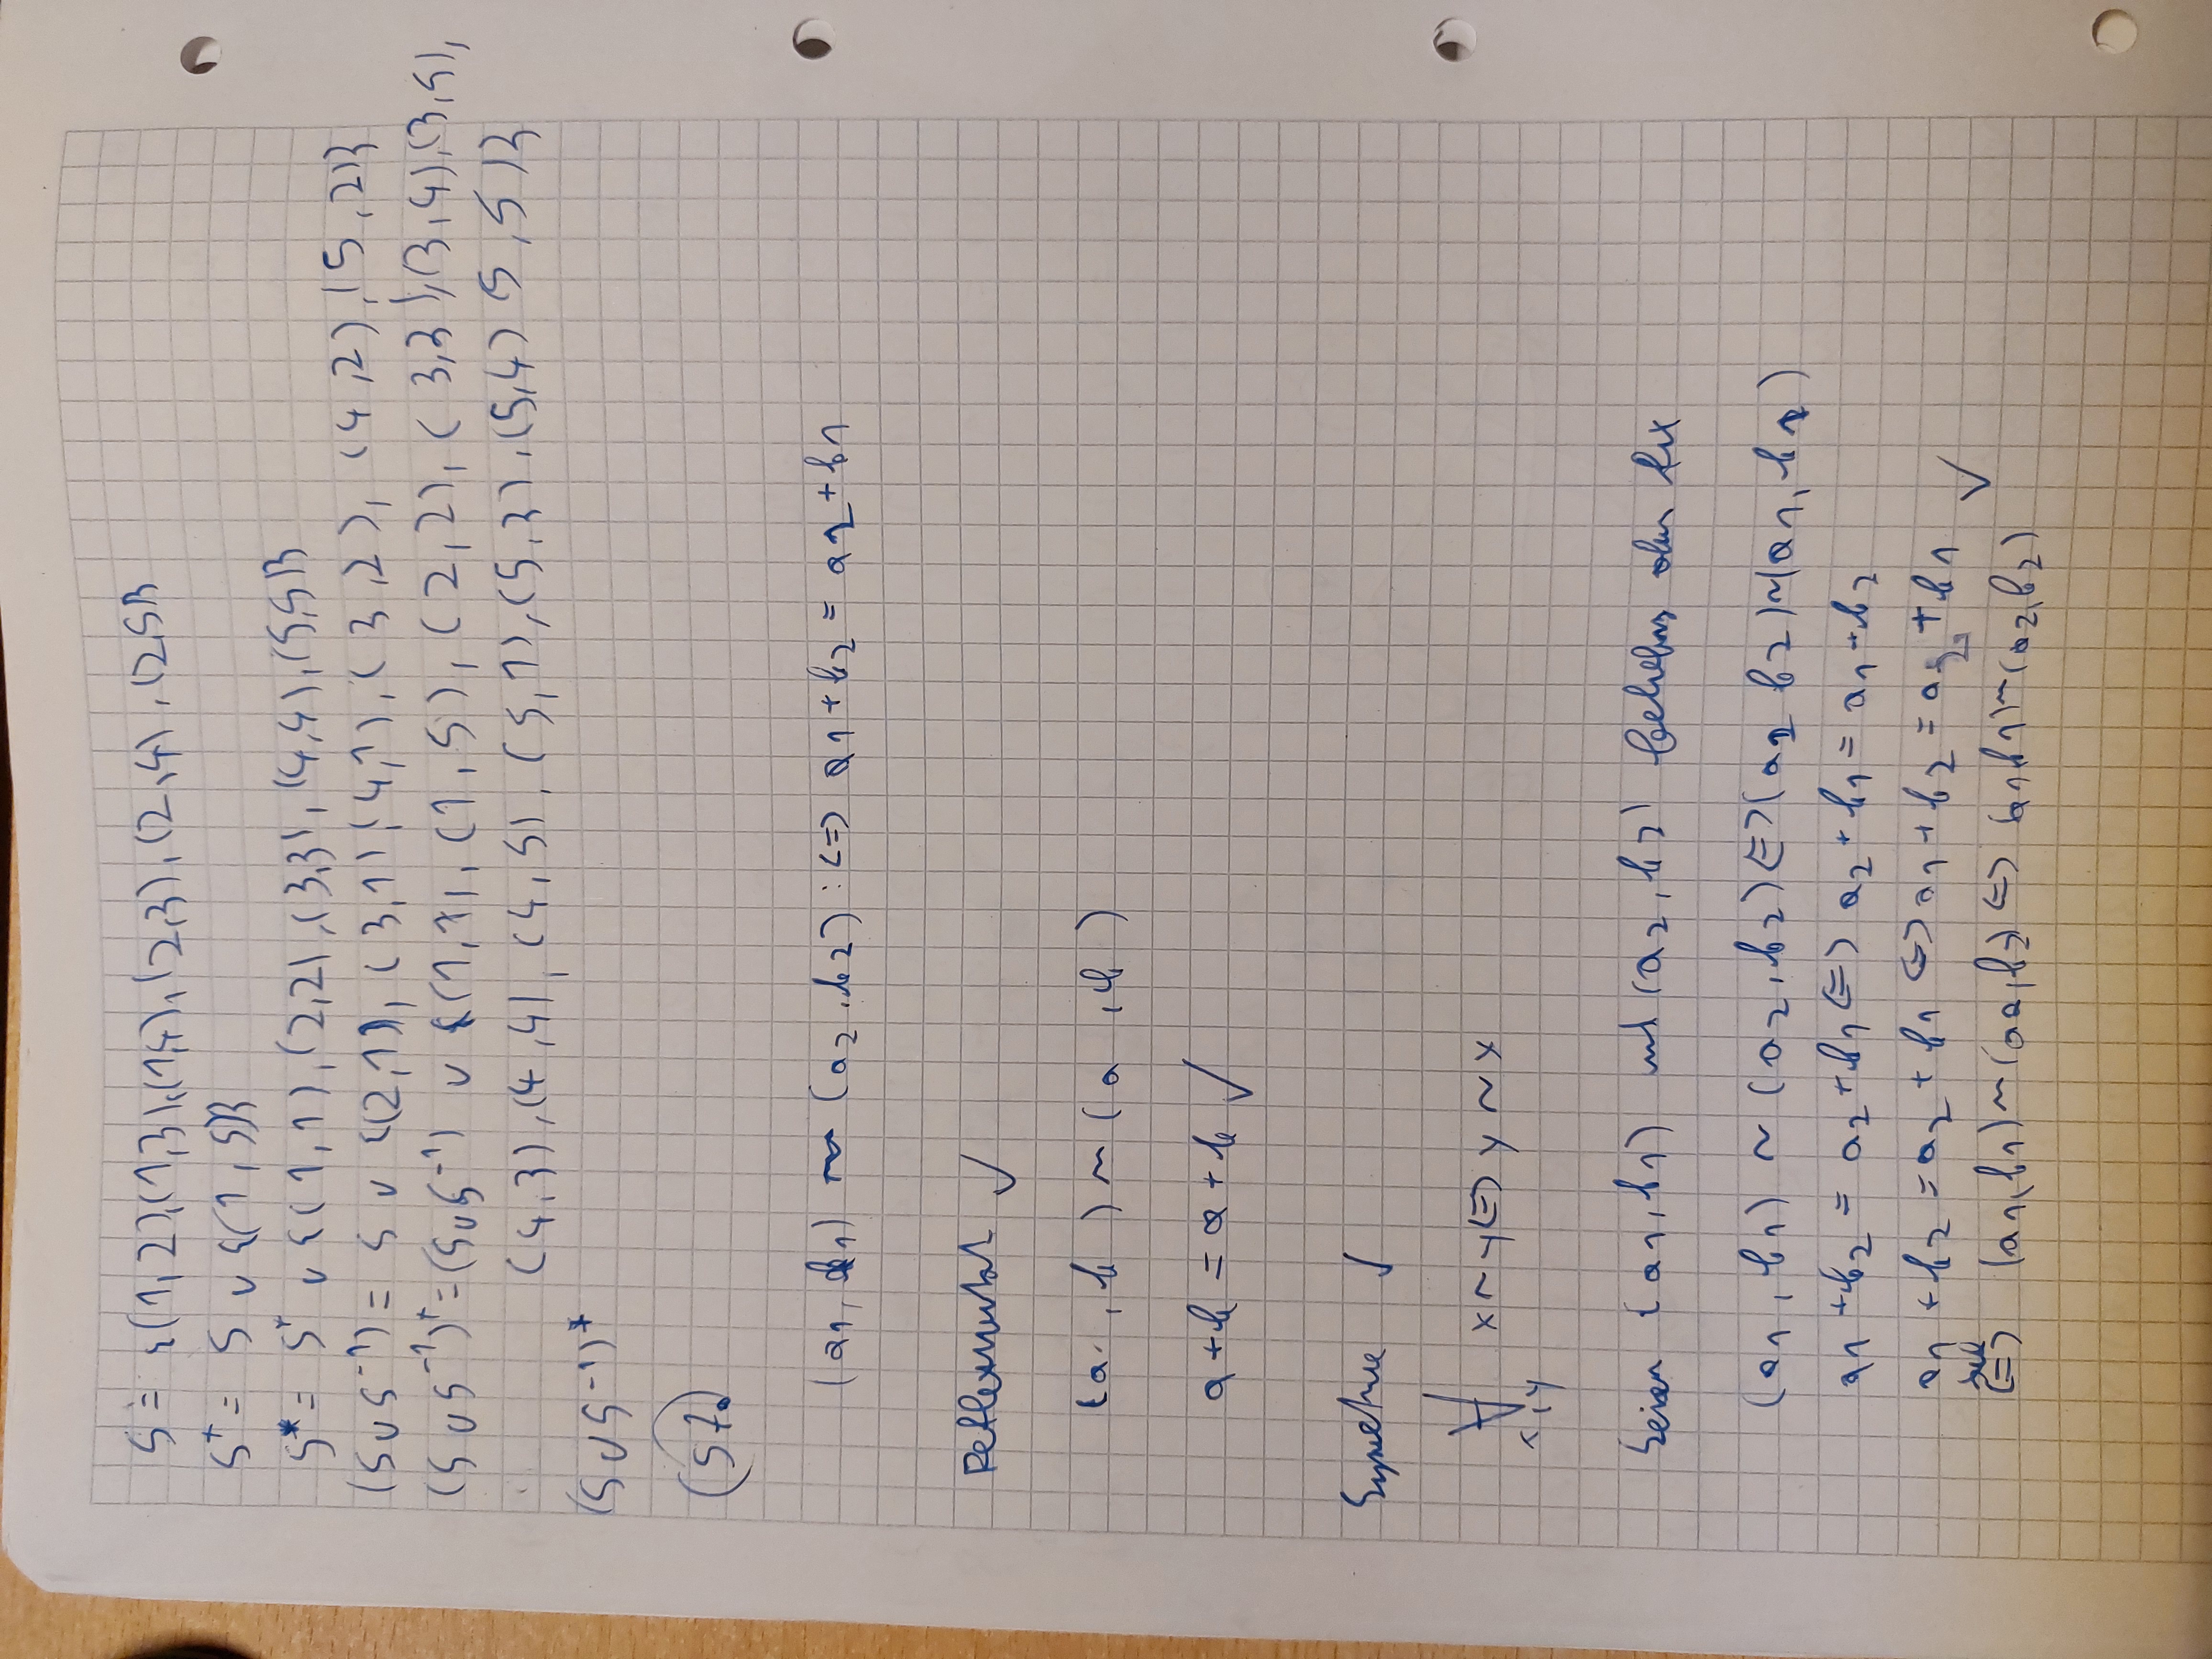 S = {(1,2),(1,3),(1,4),(2,3),(2,4),(2,5)}
S⁺ = S ∪ {(1,5)}
S* = S⁺ ∪ {(1,1),(2,2),(3,3),(4,4),(5,5)}
(S∪S⁻¹) = S ∪ {(2,1),(3,1),(4,1),(3,2),(4,2),(5,2)}
(S∪S⁻¹)⁺ = (S∪S⁻¹) ∪ {(1,1),(1,5),(2,2),(3,3),(3,4),(3,5),
(4,3),(4,4),(4,5),(5,1),(5,3),(5,4) 5,5)}
(S∪S⁻¹)*
57.
(a₁,b₁) ~ (a₂,b₂) :⇔ a₁+b₂ = a₂+b₁
Reflexivität ✓
(a,b) ~ (a,b)
a+b = a+b ✓
Symetrie ✓
∀ x~y ⇔ y~x
x,y
Seien (a₁,b₁) und (a₂,b₂) beliebig aber fix
(a₁,b₁) ~ (a₂,b₂) ⇔ (a₂ b₂) ~ (a₁,b₁)
a₁+b₂ = a₂+b₁ ⇔ a₂+b₁ = a₁+b₂
a₁+b₂ = a₂+b₁ ⇔ a₁+b₂ = a₂+b₁ ✓
⇔ (a₁,b₁)~(a₂,b₂) ⇔ (a₁,b₁)~(a₂,b₂)